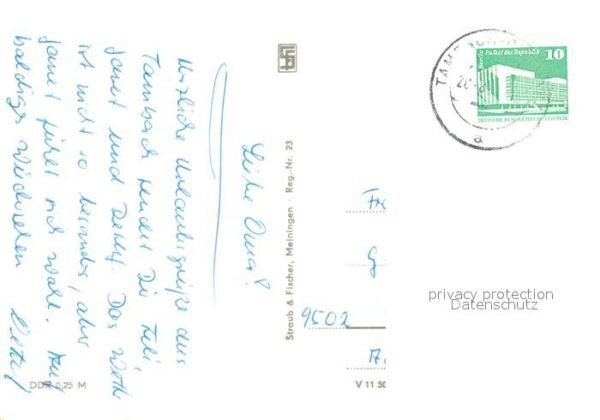 Liebe Oma!
Herzliche Urlaubsgrüße aus
Tambach sendet Dir
Janet und Detlef. Das Wetter
ist nicht so besonders, aber
Janet fühlt sich wohl. Auf
baldiges Wiedersehen
Straub & Fischer, Meiningen · Reg.-Nr. 23
DDR 0,25 M
V 11 50
Berlin Palast der Republik
10
DEUTSCHE DEMOKRATISCHE REPUBLIK
9502
privacy protection
Datenschutz